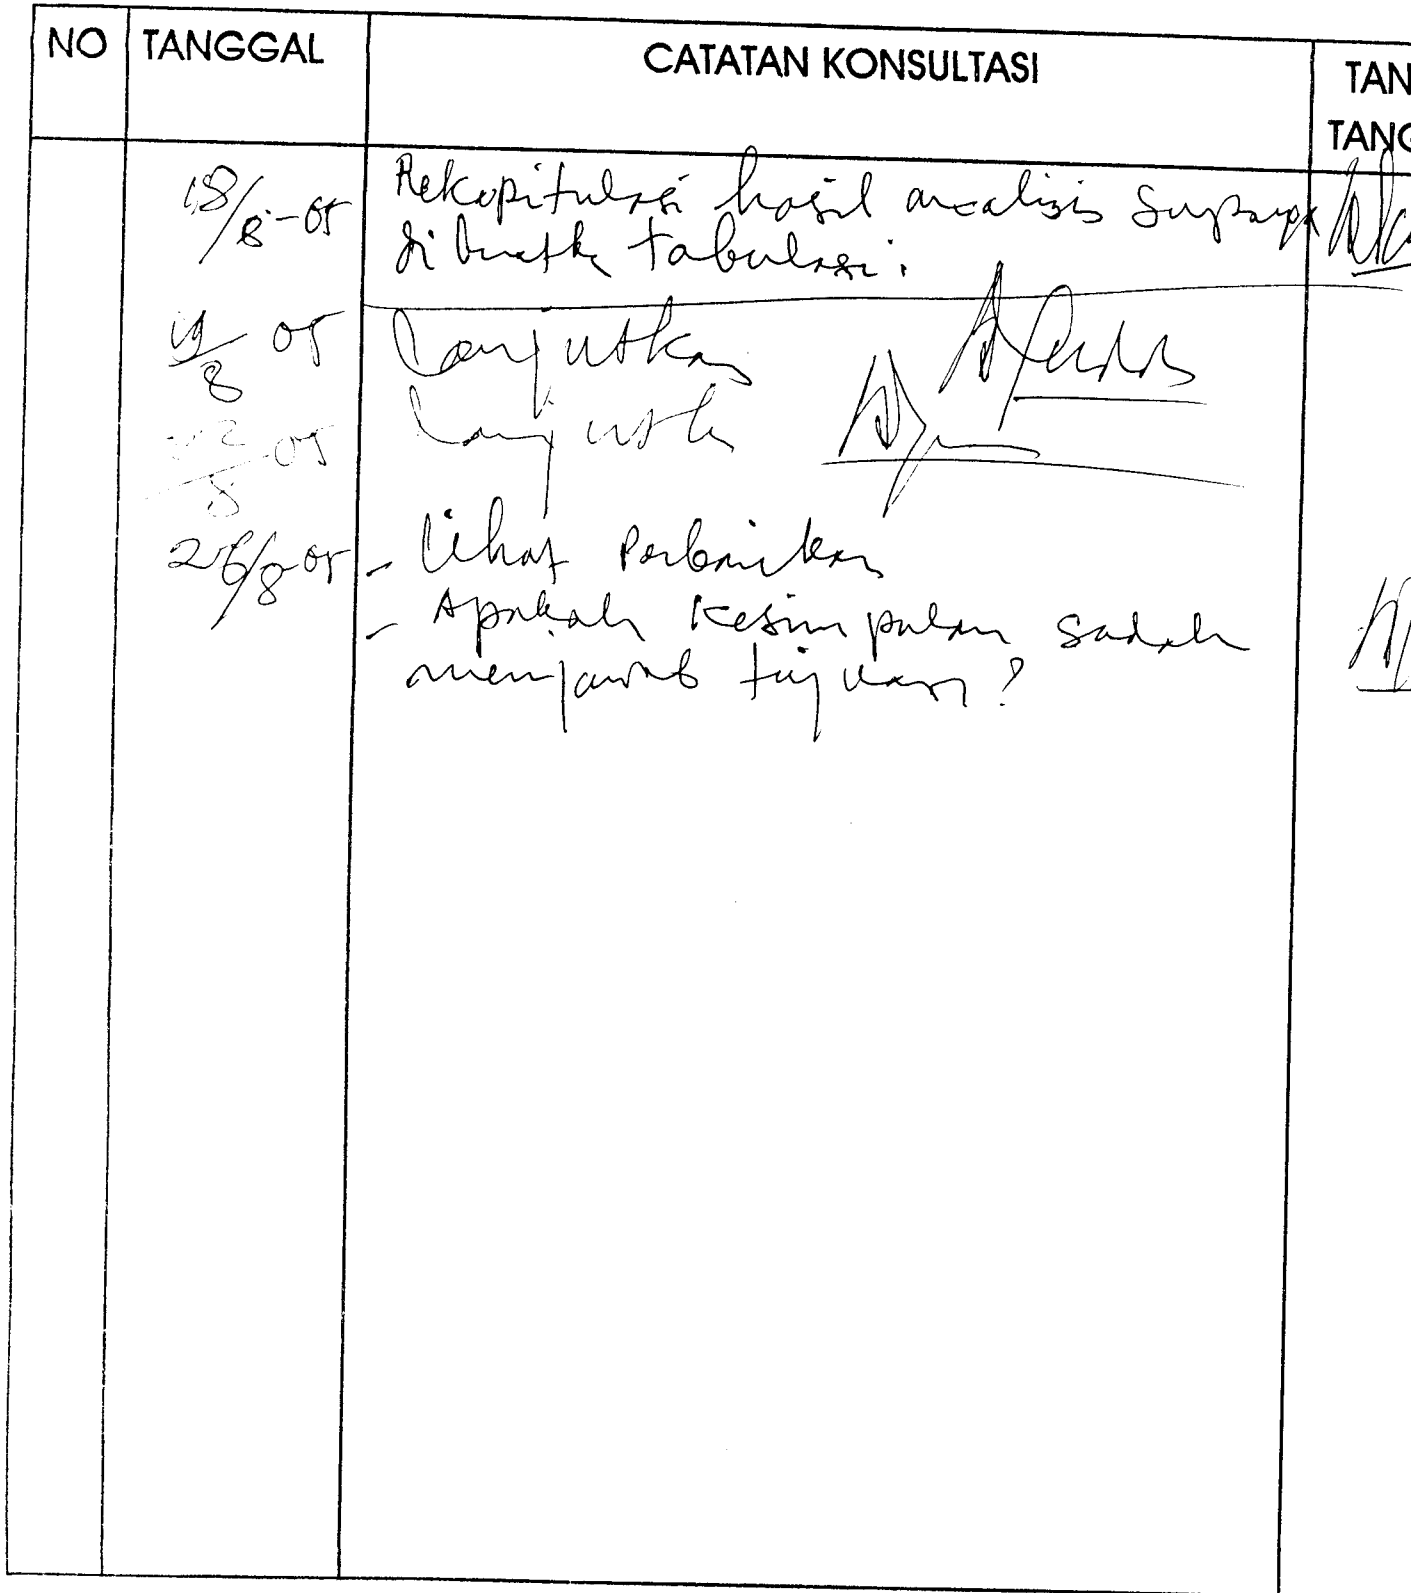 NO TANGGAL CATATAN KONSULTASI TAN
TANG
18/8-05 Rekapitulasi hasil analisis supaya
dibuatk tabulasi.
19/8 05 Lanjutkan
05 Lanjutk
26/8-05 - Lihat Perbaikan
- Apakah Kesimpulan sudah
menjawab tujuan?